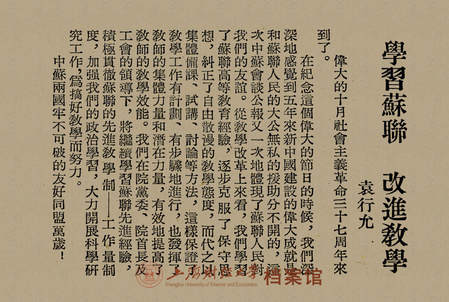 學習蘇聯　改進教學
袁行允
偉大的十月社會主義革命三十七周年來
到了。
在紀念這個偉大的節日的時候，我們深
深地感覺到五年來新中國建設的偉大成就是
和蘇聯人民的大公無私的援助分不開的，這
次中蘇會談公報又一次地體現了蘇聯人民對
我們的友誼。從教學改革上來看，我們學習
了蘇聯高等教育經驗，逐步克服了保守思
想，糾正了自由散漫的教學態度，而代之以
集體備課、試講、討論等方法，這樣保證了
教學工作有計劃、有步驟地進行，也發揮了
教師的集體力量和潛在力量，有效地提高了
教師的教學效能。我們在院黨委、院首長及
工會的領導下，將繼續學習蘇聯先進經驗，
積極貫徹蘇聯的先進教學制——工作量制
度，加强我們的政治學習，大力開展科學研
究工作，爲搞好教學而努力。
中蘇兩國牢不可破的友好同盟萬歲！
上海财经大学
档案馆
Shanghai University of Finance and Economics